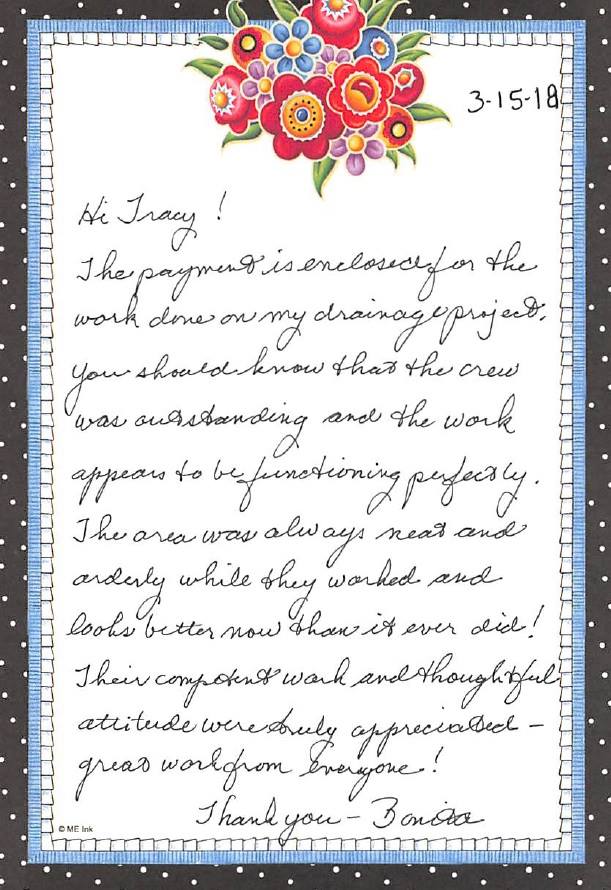 3-15-18
Hi Tracy!
The payment is enclosed for the
work done on my drainage project.
You should know that the crew
was outstanding and the work
appears to be functioning perfectly.
The area was always neat and
orderly while they worked and
looks better now than it ever did!
Their competent work and thoughtful
attitude were truly appreciated –
great work from everyone!
Thank you – Bonita
© ME Ink